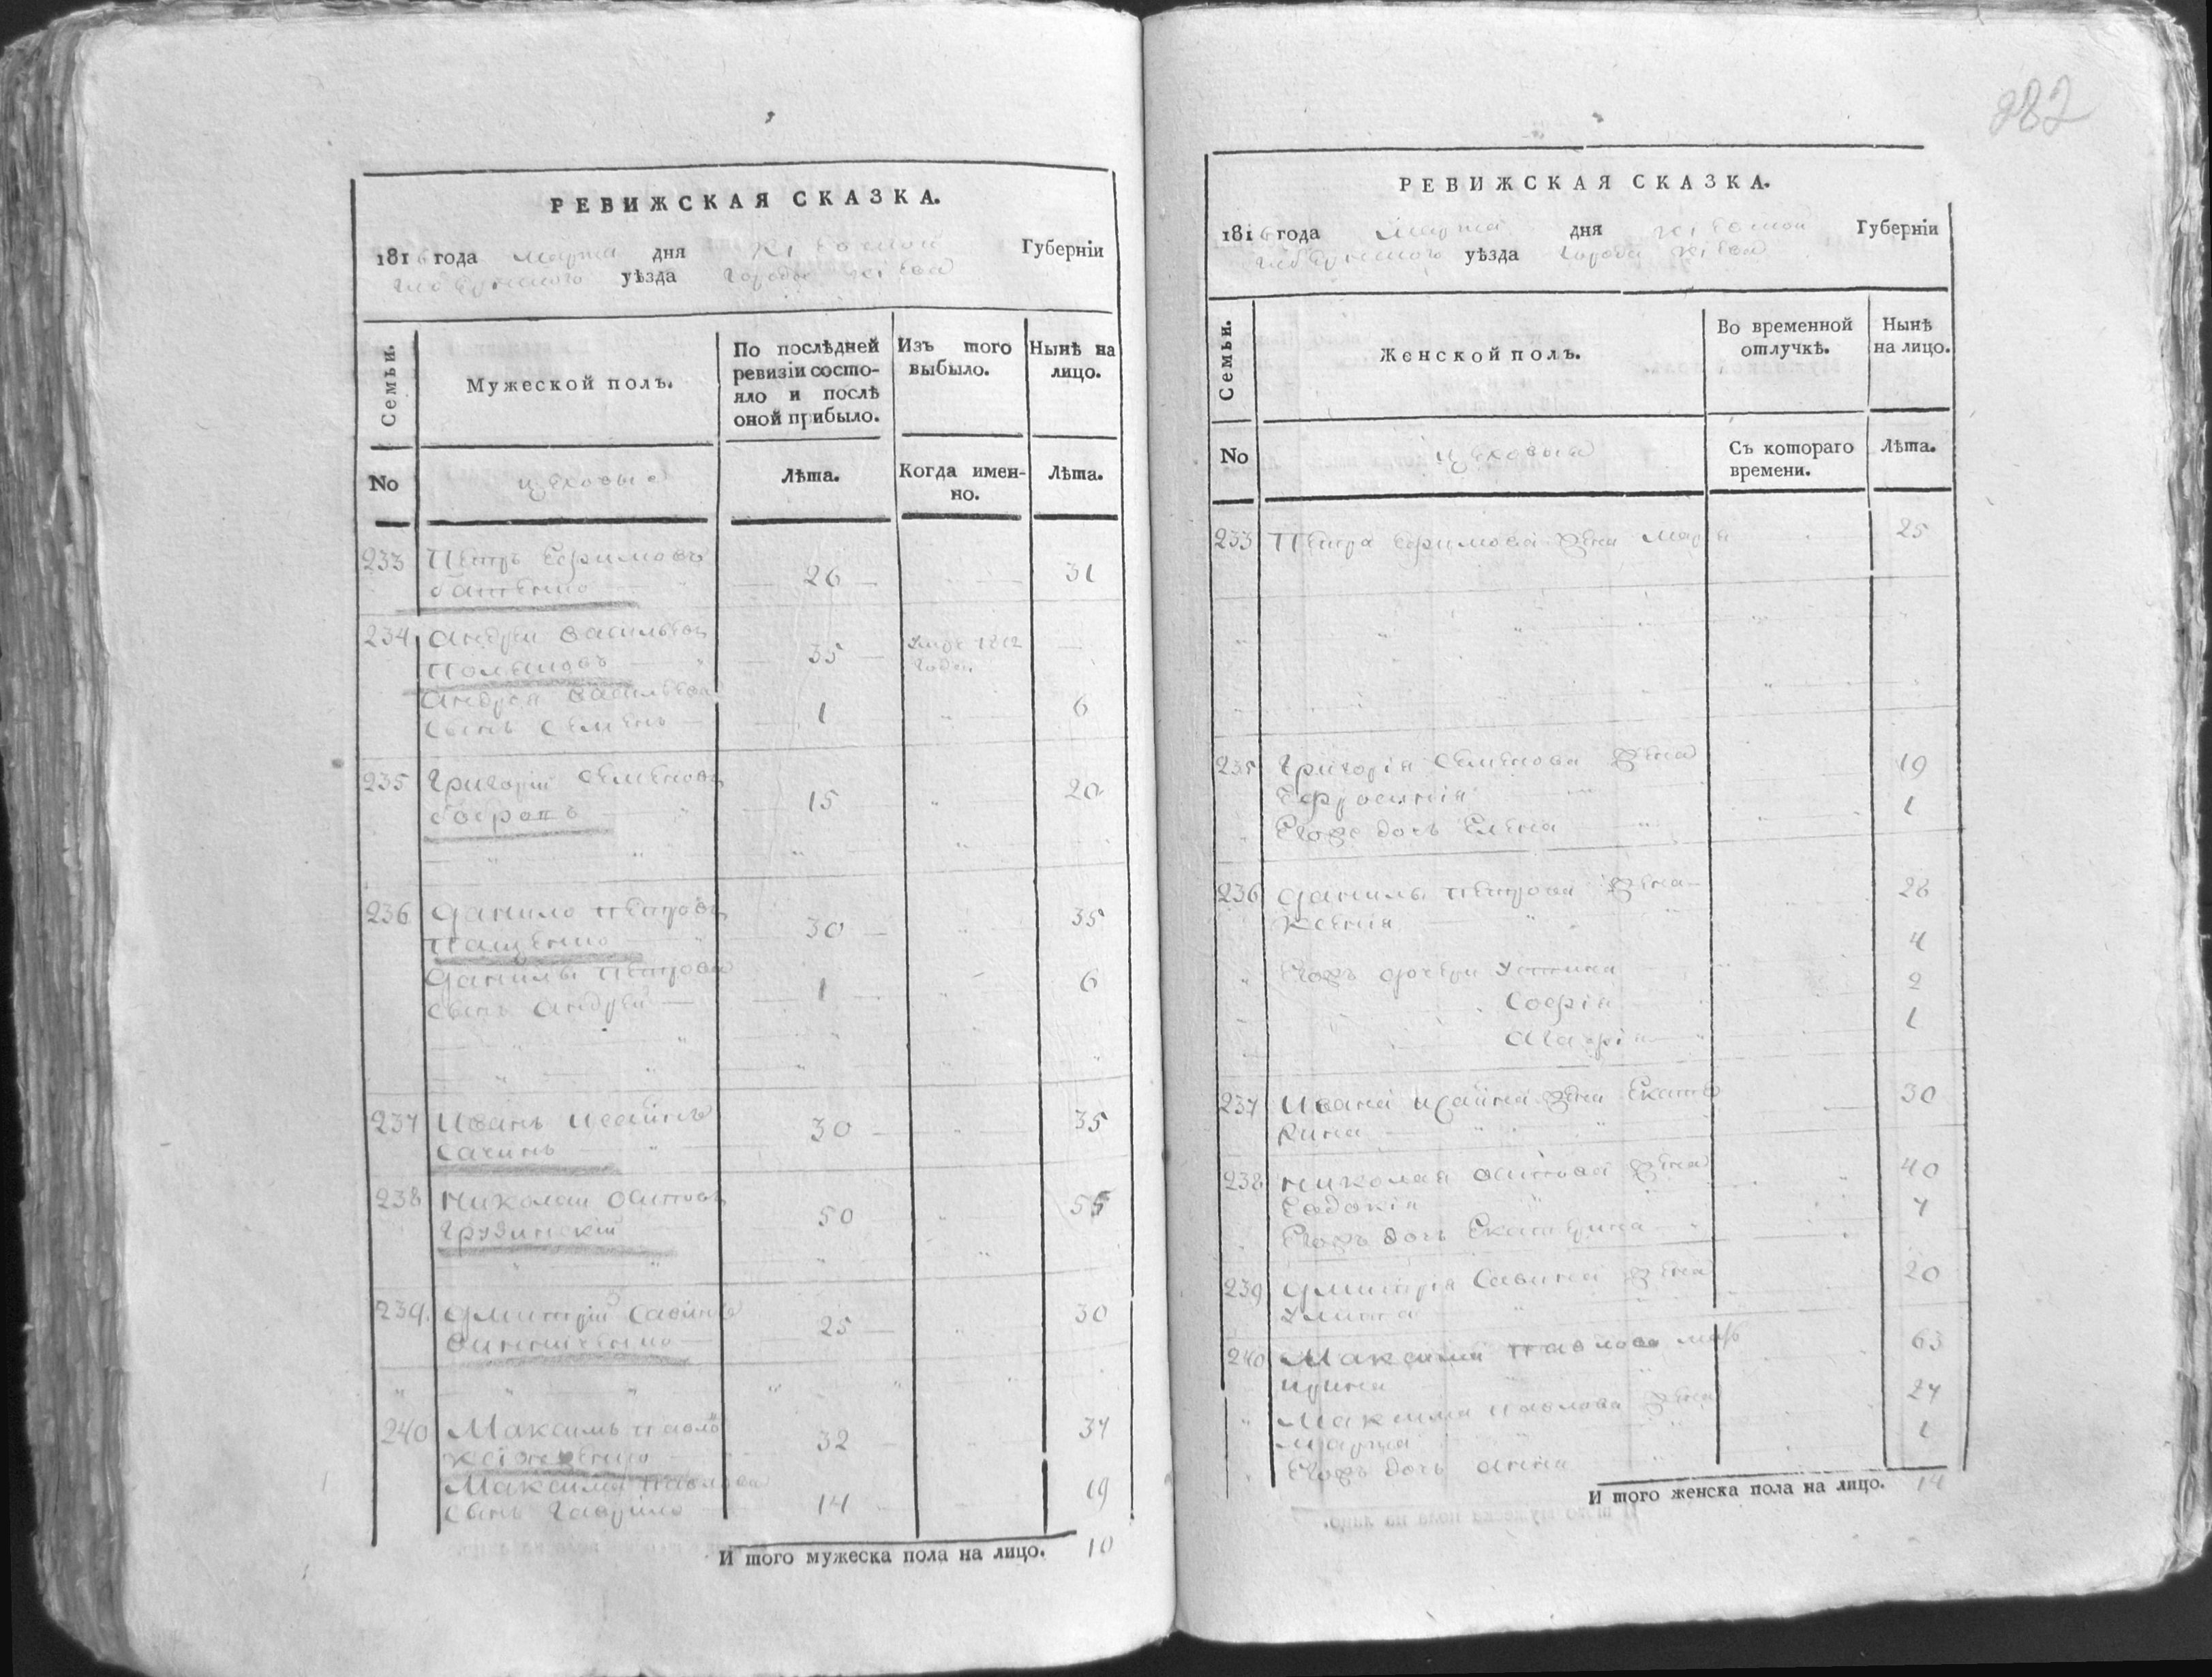 282
РЕВИЖСКАЯ СКАЗКА.
1816 года марта дня Кіевской Губерніи
уѣзда города Кіева
Семьи.
Мужеской полъ.
По послѣдней
ревизіи состо-
яло и послѣ
оной прибыло.
Изъ того
выбыло.
Нынѣ на
лицо.
No
цеховые
Лѣта.
Когда имен-
но.
Лѣта.
233 Петръ Ефимовъ
26 31
234 Андрей Васильевъ
35 1812
года
Андрея Васильева
сынъ Семенъ 1 6
235 Григорій Семеновъ
Бобрапъ 15 20
236 Данило Петровъ
Пащенко 30 35
Данилы Петрова
сынъ Андрей 1 6
237 Иванъ Исаинъ
Сачинъ 30 35
238 Николай Осиповъ
Грузинскій 50 55
239 Дмитрій Савинъ
Винниченко 25 30
240 Максимъ Павловъ
32 37
Максима Павлова
сынъ Гаврило 14 19
И того мужеска пола на лицо. 10
РЕВИЖСКАЯ СКАЗКА.
1816 года Марта дня Кіевской Губерніи
уѣзда города Кіева
Семьи.
Женской полъ.
Во временной
отлучкѣ.
Нынѣ
на лицо.
No
цеховыя
Съ котораго
времени.
Лѣта.
233 Петра Ефимова жена Марья 25
235 Григорія Семенова жена
Ефросинія 19
Егоже дочь Елена 1
236 Данилы Петрова жена
Ксенія 28
Егожъ дочери Устина 4
Софія 2
Марія 1
237 Ивана Исаина жена Екате
рина 30
238 Николая Осипова жена
Евдокія 40
Егожъ дочь Екатерина 7
239 Дмитрія Савина жена
Улита 20
240 Максима Павлова мать
Ирина 63
Максима Павлова жена
Марфа 27
Егожъ дочь Анна 1
И того женска пола на лицо. 14